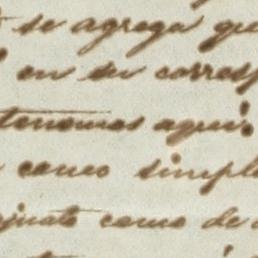 se agrega que
en su corresp
tenemos aqui.
como simple
como de